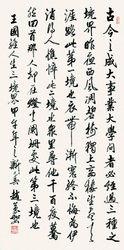 古今之成大事業大學問者必經過三種之
境界昨夜西風凋碧樹獨上高樓望盡天
涯路此第一境也衣帶漸寬終不悔為伊
消得人憔悴此第二境也眾裏尋他千百度驀
然回首那人却在燈火闌珊處此第三境也
王國維人生三境界甲午年